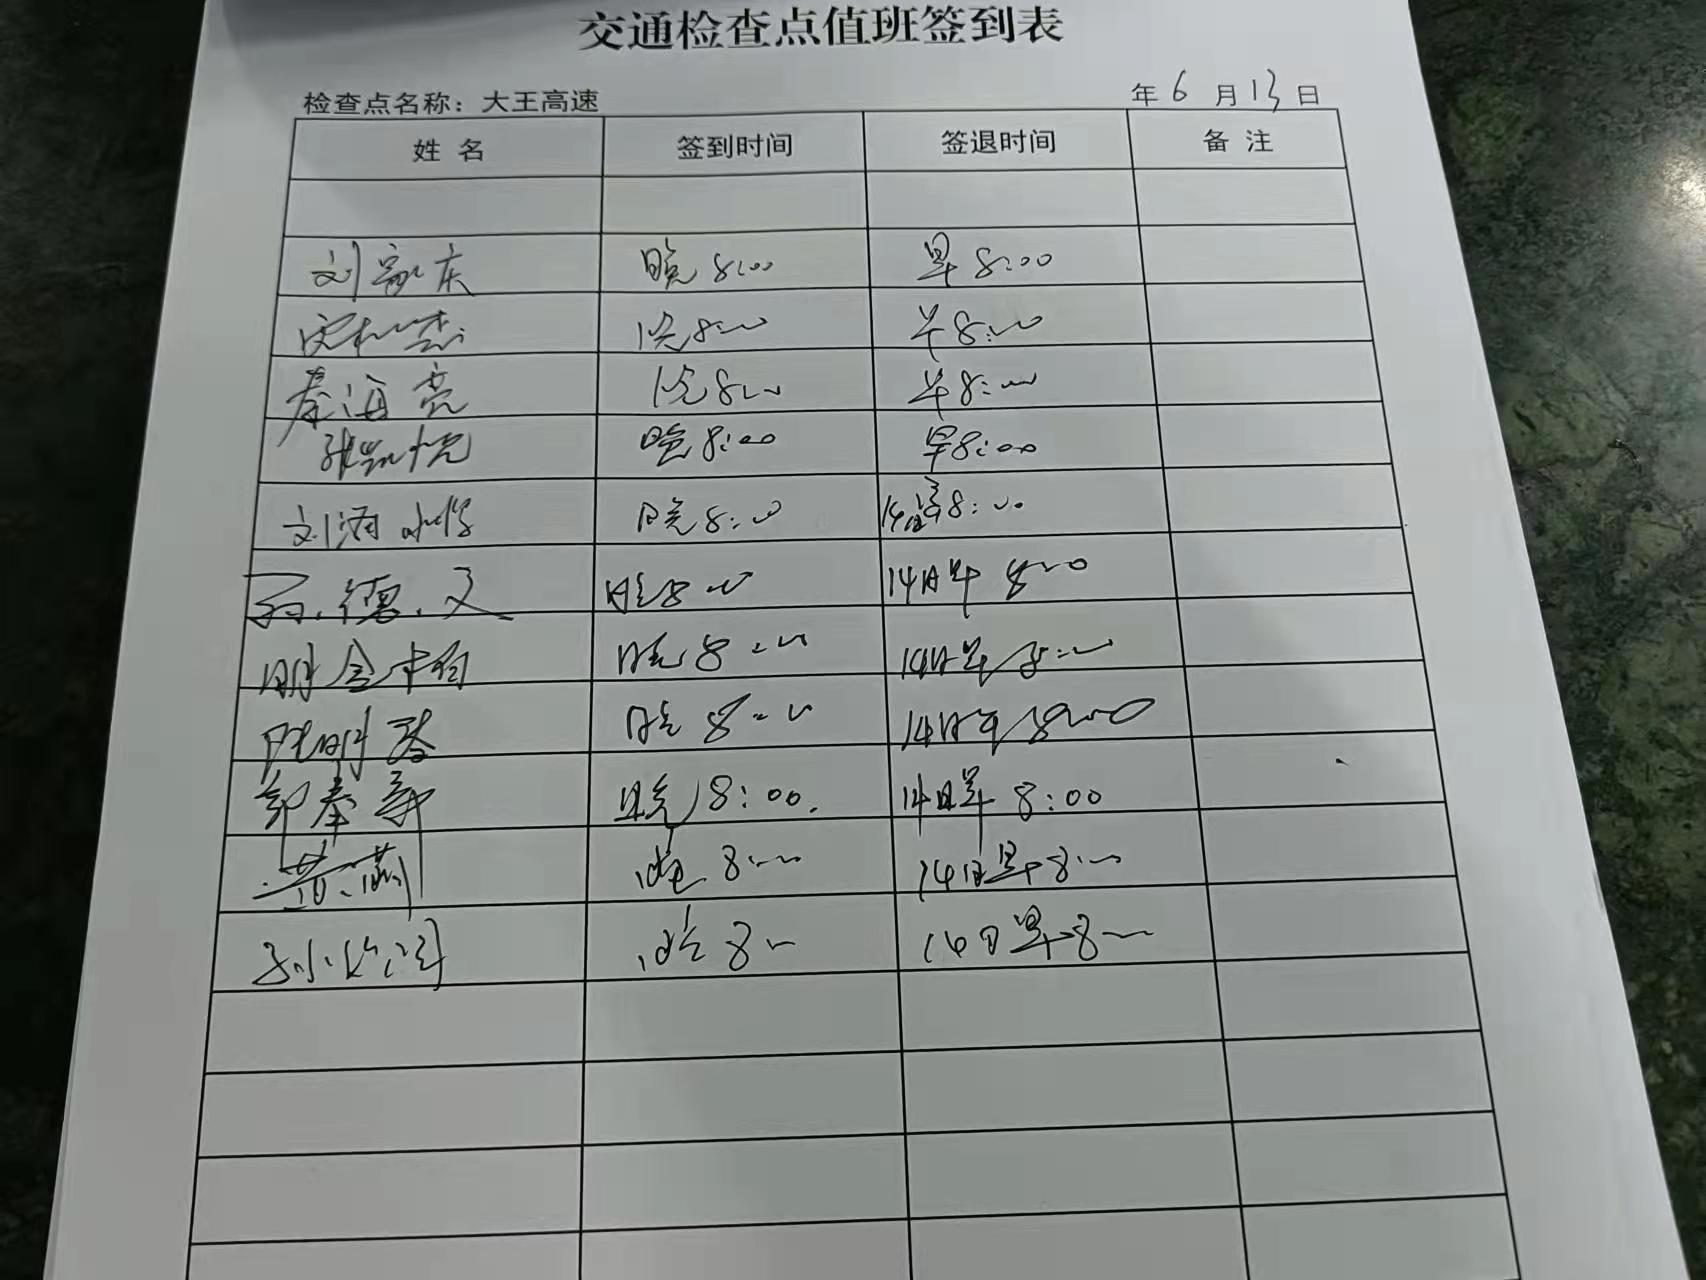 交通检查点值班签到表
检查点名称：大王高速 年 6 月 13 日
姓 名 签到时间 签退时间 备 注
刘家庆 晚 8:00 早 8:00
晚 8:00 早 8:00
秦海亮 晚 8:00 早 8:00
张凯悦 晚 8:00 早 8:00
刘 晚 8:00 14日早 8:00
孙德文 晚 8:00 14日早 8:00
明金 晚 8:00 14日早 8:00
陈明 晚 8:00 14日早 8:00
郭奉新 晚 8:00. 14日早 8:00
黄 晚 8:00 14日早 8:00
孙 晚 8:00 14日早 8:00